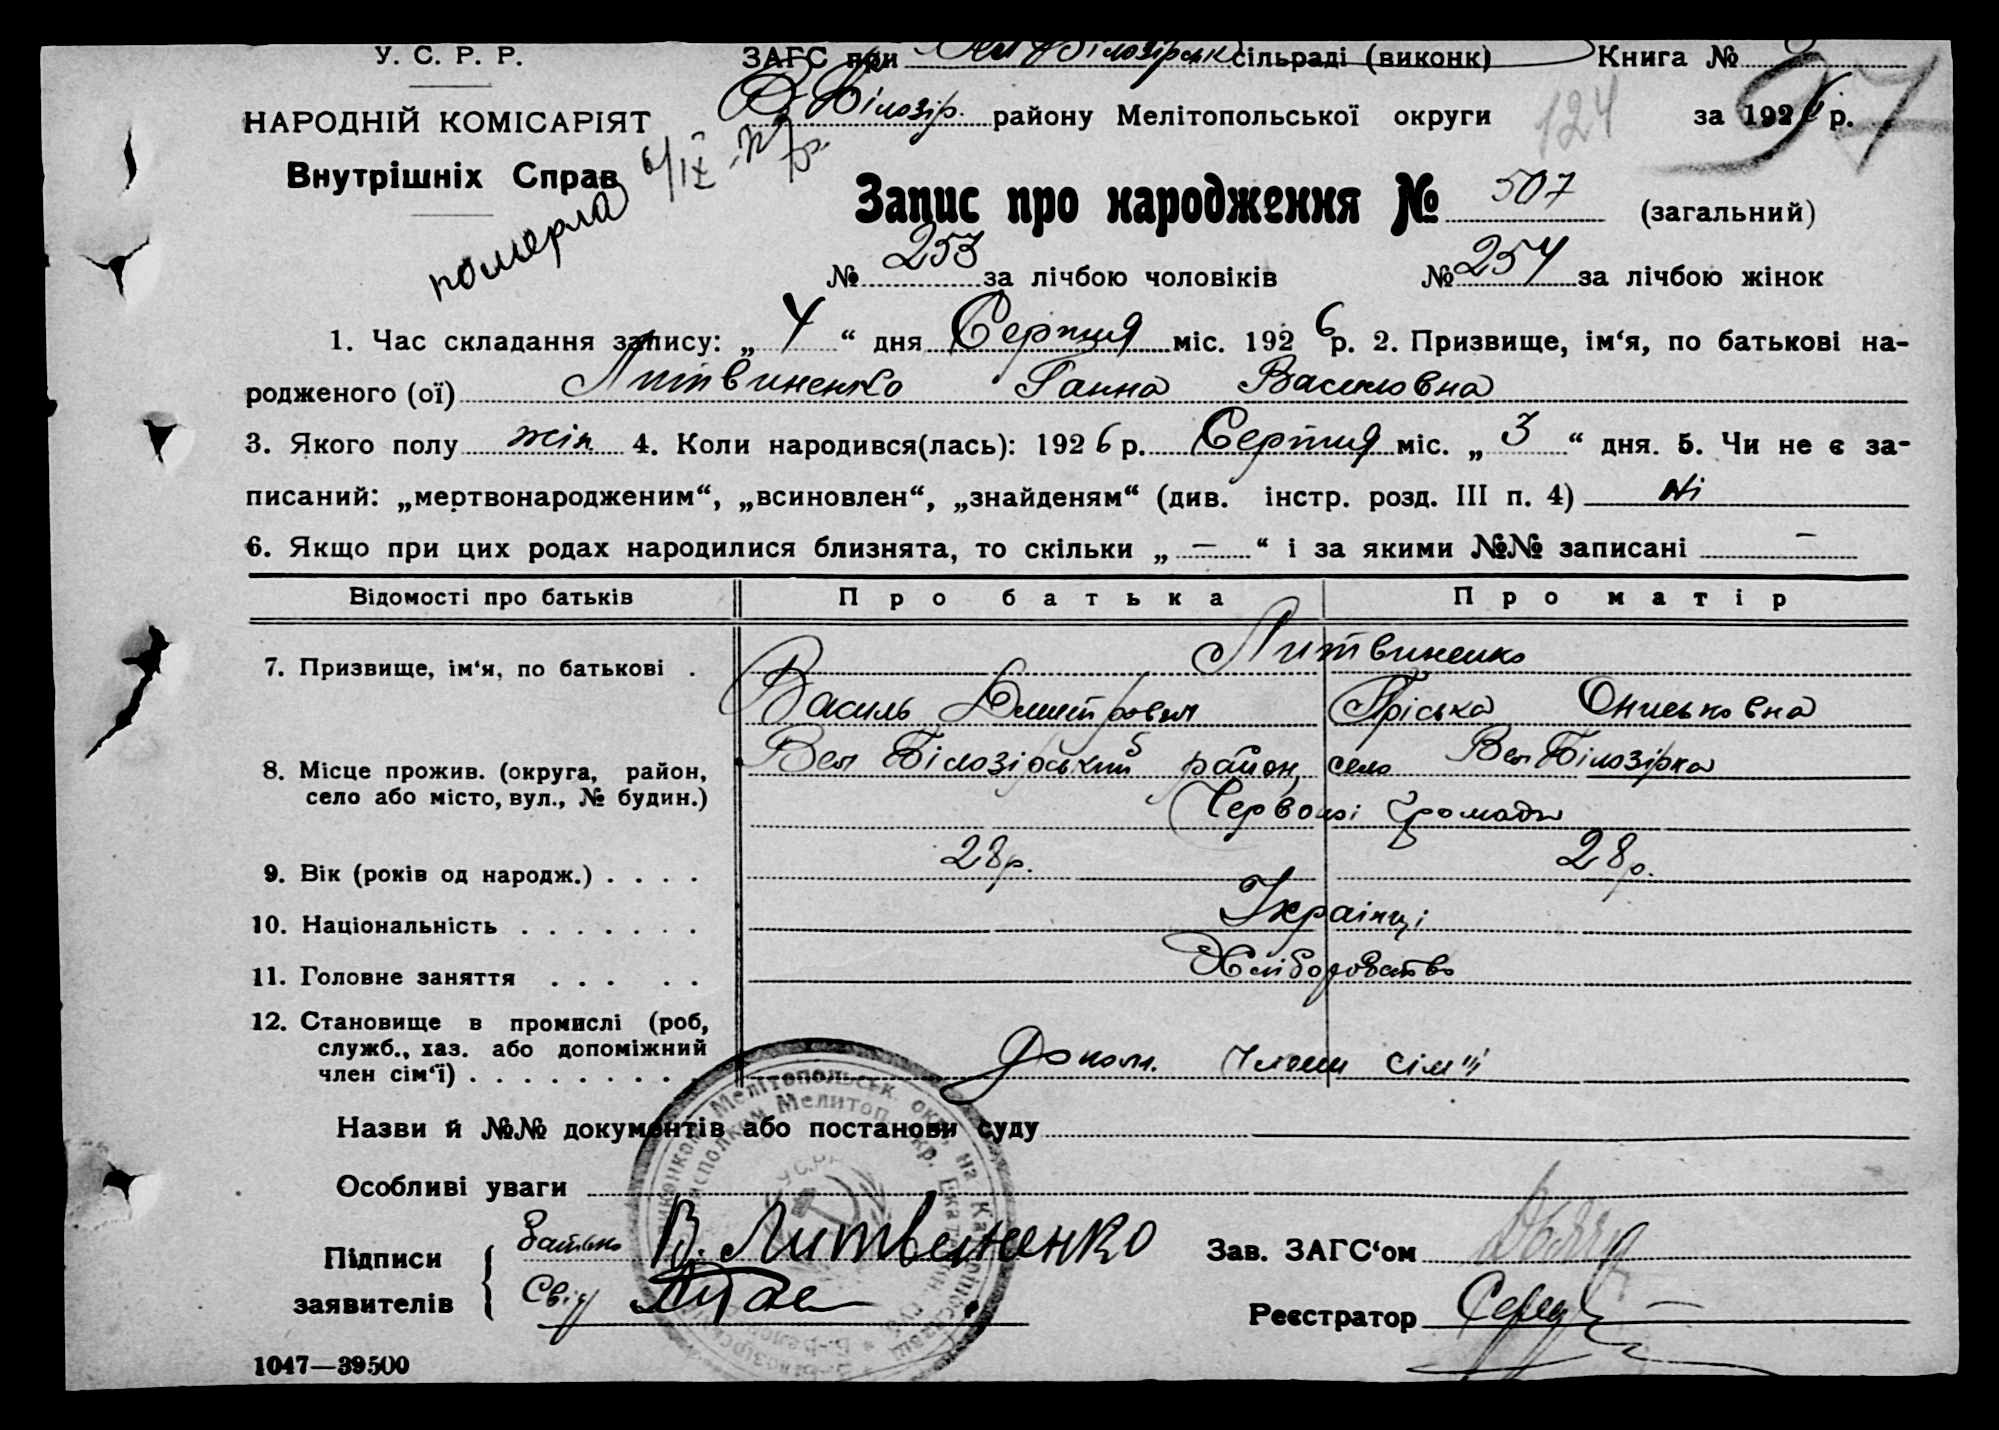 У. С. Р. Р. ЗАГС при Білозірськ сільраді (виконк) Книга №
НАРОДНІЙ КОМІСАРІЯТ В. Білозір. району Мелітопольської округи 124 за 1926 р. 97
Внутрішніх Справ
померла 6/IX-27 р.
Запис про народження № 507 (загальний)
№ 253 за лічбою чоловіків № 254 за лічбою жінок
1. Час складання запису: „ 4 “ дня Серпня міс. 1926 р. 2. Призвище, ім‘я, по батькові на-
родженого (ої) Литвиненко Ганна Василовна
3. Якого полу жін 4. Коли народився(лась): 1926 р. Серпня міс. „ 3 “ дня. 5. Чи не є за-
писаний: „мертвонародженим“, „всиновлен“, „знайденям“ (див. інстр. розд. III п. 4) Ні
6. Якщо при цих родах народилися близнята, то скільки „ — “ і за якими №№ записані —
Відомості про батьків Про батька Про матір
7. Призвище, ім‘я, по батькові . Литвиненко
Василь Дмитрович Пріська Ониськовна
8. Місце прожив. (округа, район, Вел Білозірський район, село Вел Білозірка
село або місто, вул., № будин.) Червоної Громади
9. Вік (років од народж.) . . . . 28 р. 28 р.
10. Національність . . . . . . . Українці
11. Головне заняття . . . . . Хліборобство
12. Становище в промислі (роб,
служб., хаз. або допоміжний
член сім‘ї) . . . . . . . . . Допом. Члени сім'ї
Назви й №№ документів або постанови суду
Особливі уваги
Підписи Батько В. Литвиненко Зав. ЗАГС‘ом
заявителів Свід Реєстратор
1047—39500